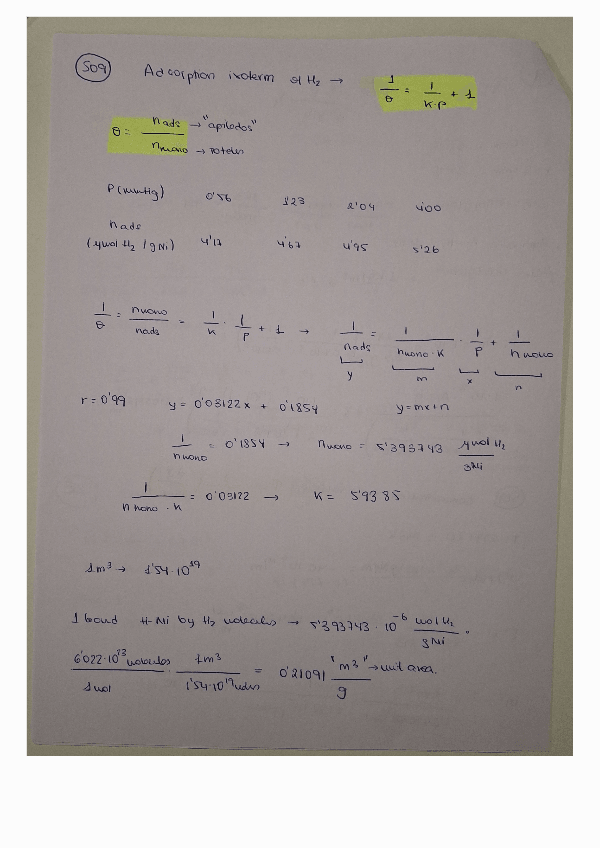 509 Adsorption isoterm of H₂ → 1/θ = 1/(K·P) + 1
θ = nads/nmono → "apilados" → totales
P(mmHg) 0'56 1'23 2'04 4'00
nads
(μmol H₂ / gNi) 4'17 4'67 4'95 5'26
1/θ = nmono/nads = 1/K · 1/P + 1 → 1/nads = 1/(nmono·K) · 1/P + 1/nmono
y m x n
r = 0'99 y = 0'03122x + 0'1854 y = mx+n
1/nmono = 0'1854 → nmono = 5'393743 μmol H₂/gNi
1/(nmono·K) = 0'03122 → K = 5'9385
1m³ → 1'54·10¹⁹
1 bond H-Ni by H₂ molecules → 5'393743·10⁻⁶ mol H₂/gNi ·
6'022·10²³ molecules/1mol · 1m³/1'54·10¹⁹ = 0'21091 "m³"/g → unit area.